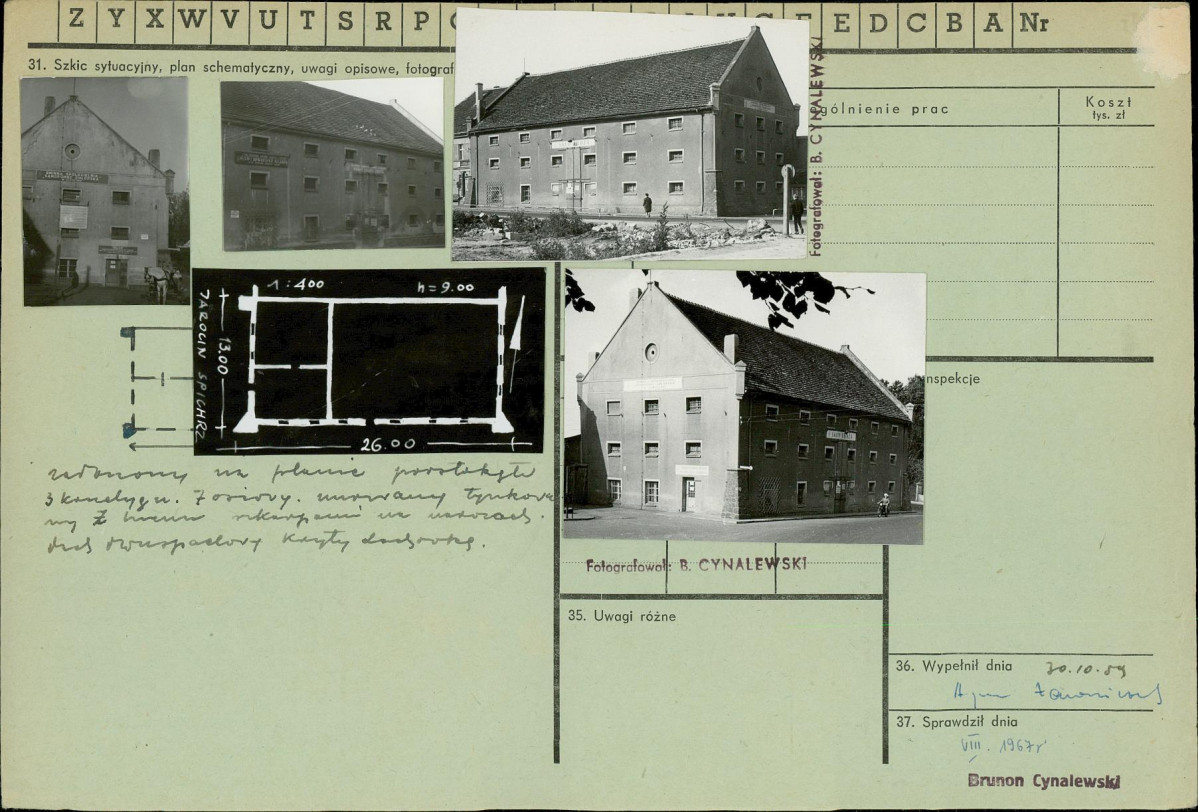 Z Y X W V U T S R P E D C B A Nr
31. Szkic sytuacyjny, plan schematyczny, uwagi opisowe, fotograf
gólnienie prac
Koszt
tys. zł
Fotografował: B. CYNALEWSKI
1:400
h=9.00
JAROCIN SPICHRZ
13.00
26.00
na planie prostokąta
3 kondygn. 7 osiowy. murowany tynkowa
ny z na narożach.
dach dwuspadowy kryty dachówką.
nspekcje
Fotografował: B. CYNALEWSKI
35. Uwagi różne
36. Wypełnił dnia 30.10.59
37. Sprawdził dnia
VIII. 1967r
Brunon Cynalewski